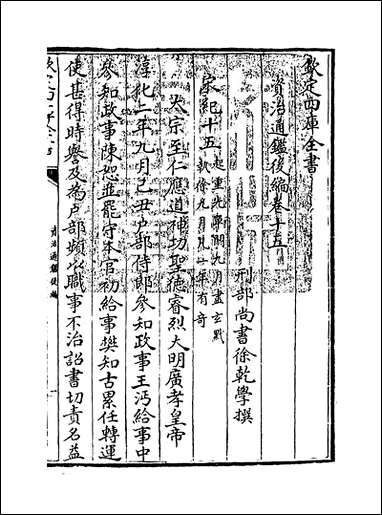 欽定四庫全書
資治通鑑後編卷十五
刑部尚書徐乾學撰
宋紀十五
起重光單閼九月盡玄黓
執徐九月凡一年有奇
太宗至仁應道神功聖德睿烈大明廣孝皇帝
淳化二年九月丑户部侍郎參知政事王沔給事中
參知政事陳恕並罷守本官初給事樊知古累任轉運
使甚得時譽及為户部頻以職事不治詔書切責名益
資治通鑑後編